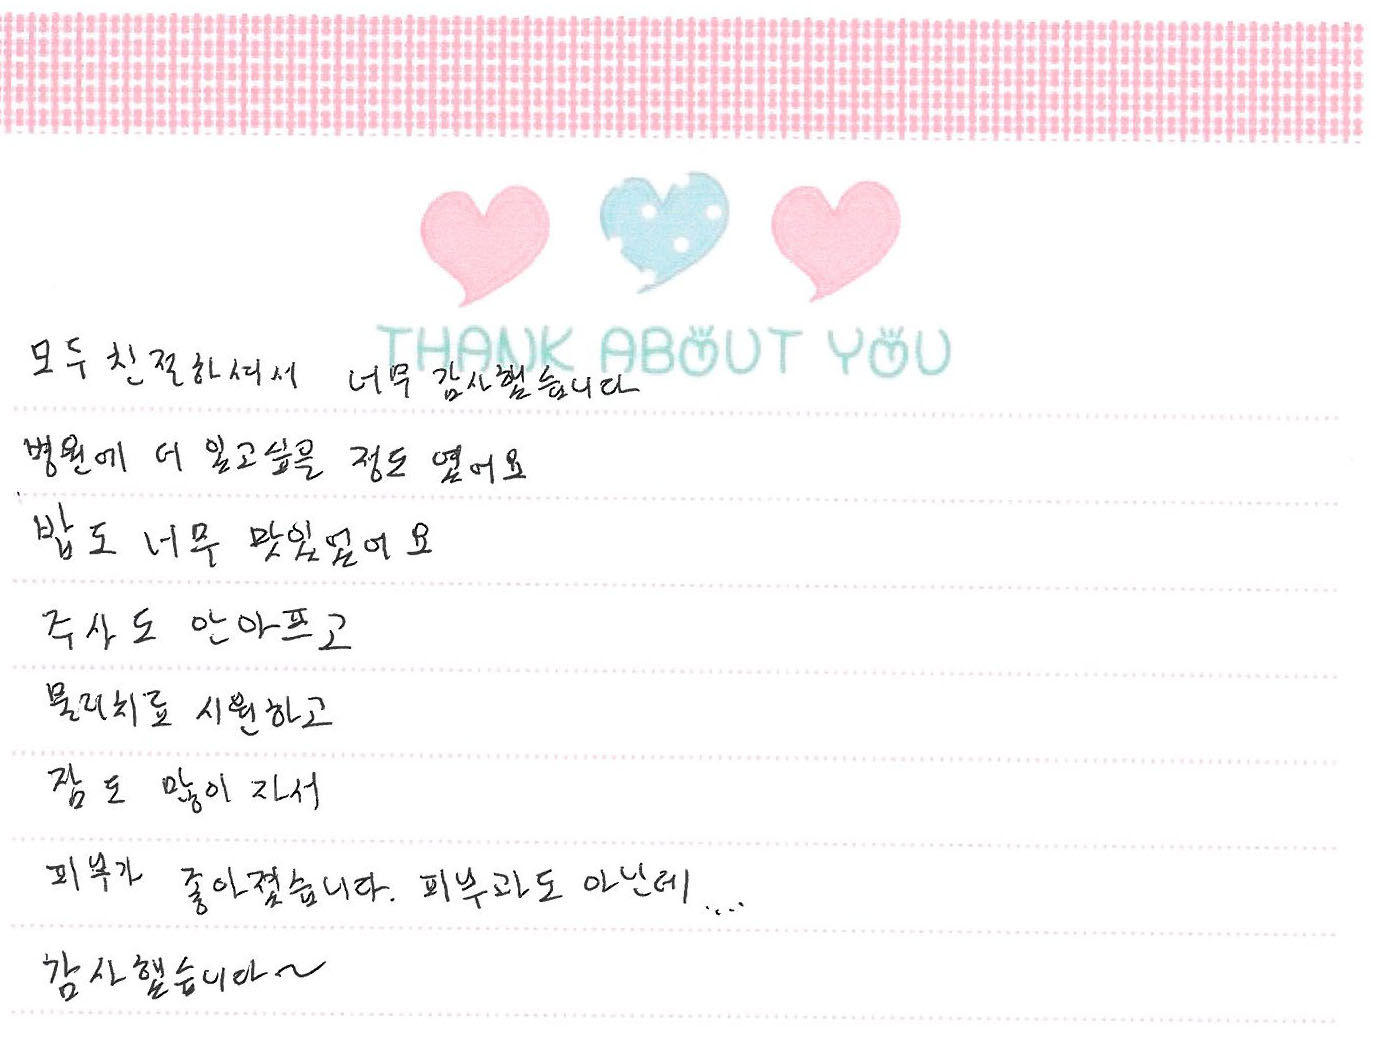 THANK ABOUT YOU
모두 친절하셔서 너무 감사했습니다
병원에 더 있고싶을 정도 였어요
밥도 너무 맛있었어요
주사도 안아프고
물리치료 시원하고
잠도 많이 자서
피부가 좋아졌습니다. 피부과도 아닌데....
감사했습니다~